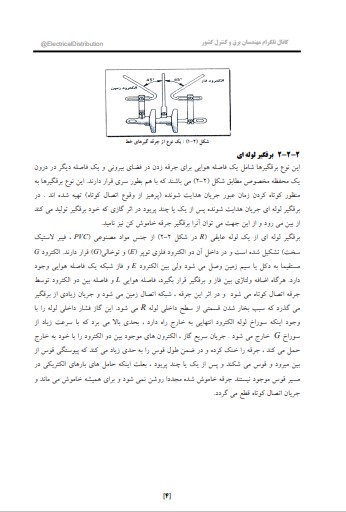 کانال تلگرام مهندسان برق و کنترل کشور
@ElectricalDistribution
45° 45°
الکترود فاز
الکترود زمین
شکل (۲-۱) : یک نوع از جرقه گیرهای خط
۲-۲-۲ برقگیر لوله ای
این نوع برقگیرها شامل یک فاصله هوایی برای جرقه زدن در فضای بیرونی و یک فاصله دیگر در درون
یک محفظه مخصوص مطابق شکل (۲-۲) می باشند که با هم بطور سری قرار دارند. این نوع برقگیرها به
منظور کوتاه کردن زمان عبور جریان هدایت شونده (پرهیز از وقوع اتصال کوتاه) تهیه شده اند . در
برقگیر لوله ای جریان هدایت شونده پس از یک یا چند پریود در اثر گازی که خود برقگیر تولید می کند
از بین می رود و از این جهت می توان آنرا برقگیر جرقه خاموش کن نیز نامید.
برقگیر لوله ای از یک لوله عایقی (R در شکل ۲-۲) از جنس مواد مصنوعی (PVC ، فیبر لاستیک
سخت) تشکیل شده است و در داخل آن دو الکترود فلزی توپر (E) و توخالی(G) قرار دارند. الکترود G
مستقیما به دکل یا سیم زمین وصل می شود ولی بین الکترود E و فاز شبکه یک فاصله هوایی وجود
دارد. هرگاه اضافه ولتاژی بین فاز و برقگیر قرار بگیرد، فاصله هوایی L و فاصله بین دو الکترود توسط
جرقه اتصال کوتاه می شود و در اثر این جرقه ، شبکه اتصال زمین می شود و جریان زیادی از برقگیر
می گذرد که سبب بخار شدن قسمتی از سطح داخلی لوله R می شود. این گاز فشار داخلی لوله را با
وجود اینکه سوراخ لوله الکترود انتهایی به خارج راه دارد ، بحدی بالا می برد که با سرعت زیاد از
سوراخ G خارج می شود . جریان سریع گاز ، الکترون های موجود بین دو الکترود را با خود به خارج
حمل می کند ، جرقه را خنک کرده و در ضمن طول قوس را به حدی زیاد می کند که پیوستگی قوس از
بین میرود و قوس می شکند و پس از یک یا چند پریود ، بعلت اینکه حامل های بارهای الکتریکی در
مسیر قوس موجود نیستند جرقه خاموش شده مجددا روشن نمی شود و برای همیشه خاموش می ماند و
جریان اتصال کوتاه قطع می گردد.
[۴]